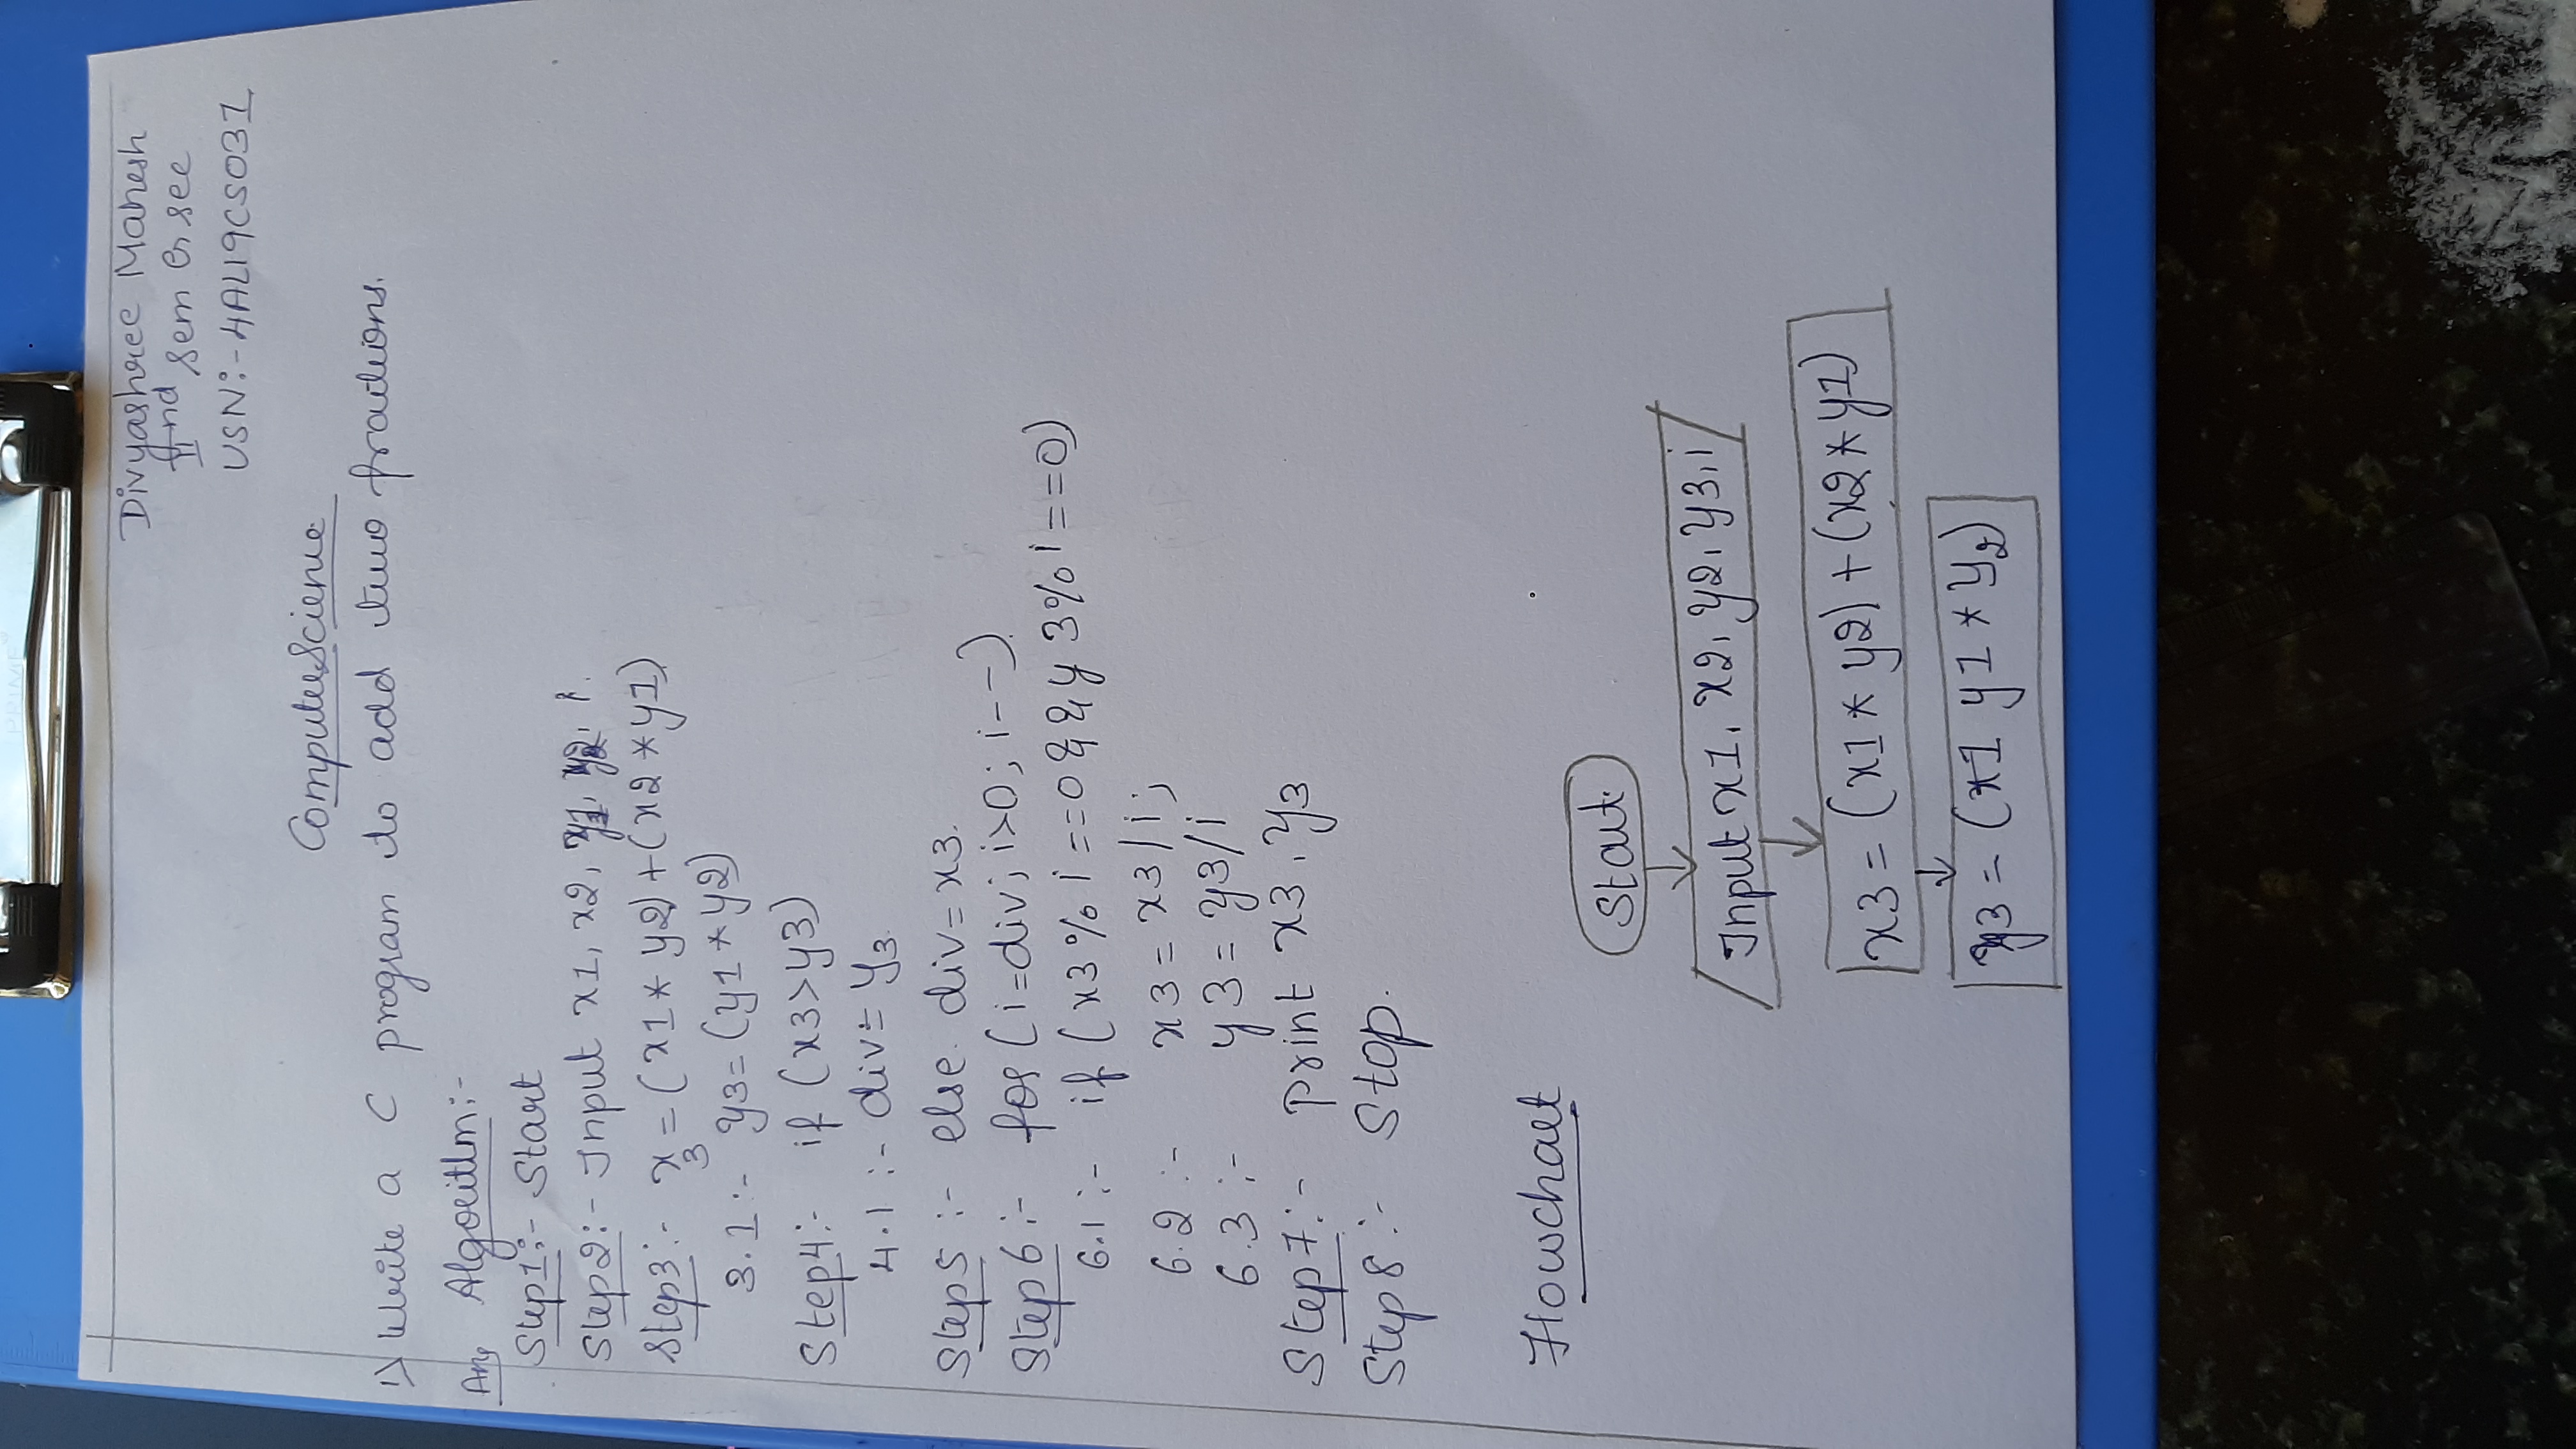 PRIME
Divyashree Mahesh
IInd sem G sec
USN:-4AL19CS031
Computer Science
1) Write a C program to add two fractions.
Ans Algorithm:-
Step1:- Start
Step2:- Input x1, x2, y1, y2, i.
Step3:- x3 = (x1 * y2) + (x2 * y1)
3.1:- y3 = (y1 * y2)
Step4:- if (x3>y3)
4.1:- div = y3.
Step5:- else div = x3.
Step6:- for (i=div; i>0; i--)
6.1:- if (x3 % i ==0 && y3 % i ==0)
6.2:- x3 = x3/i;
6.3:- y3 = y3/i
Step7:- print x3, y3
Step8:- Stop.
Flowchart
Start.
Input x1, x2, y2, y3, i
x3 = (x1 * y2) + (x2 * y1)
y3 = (x1 y1 * y2)